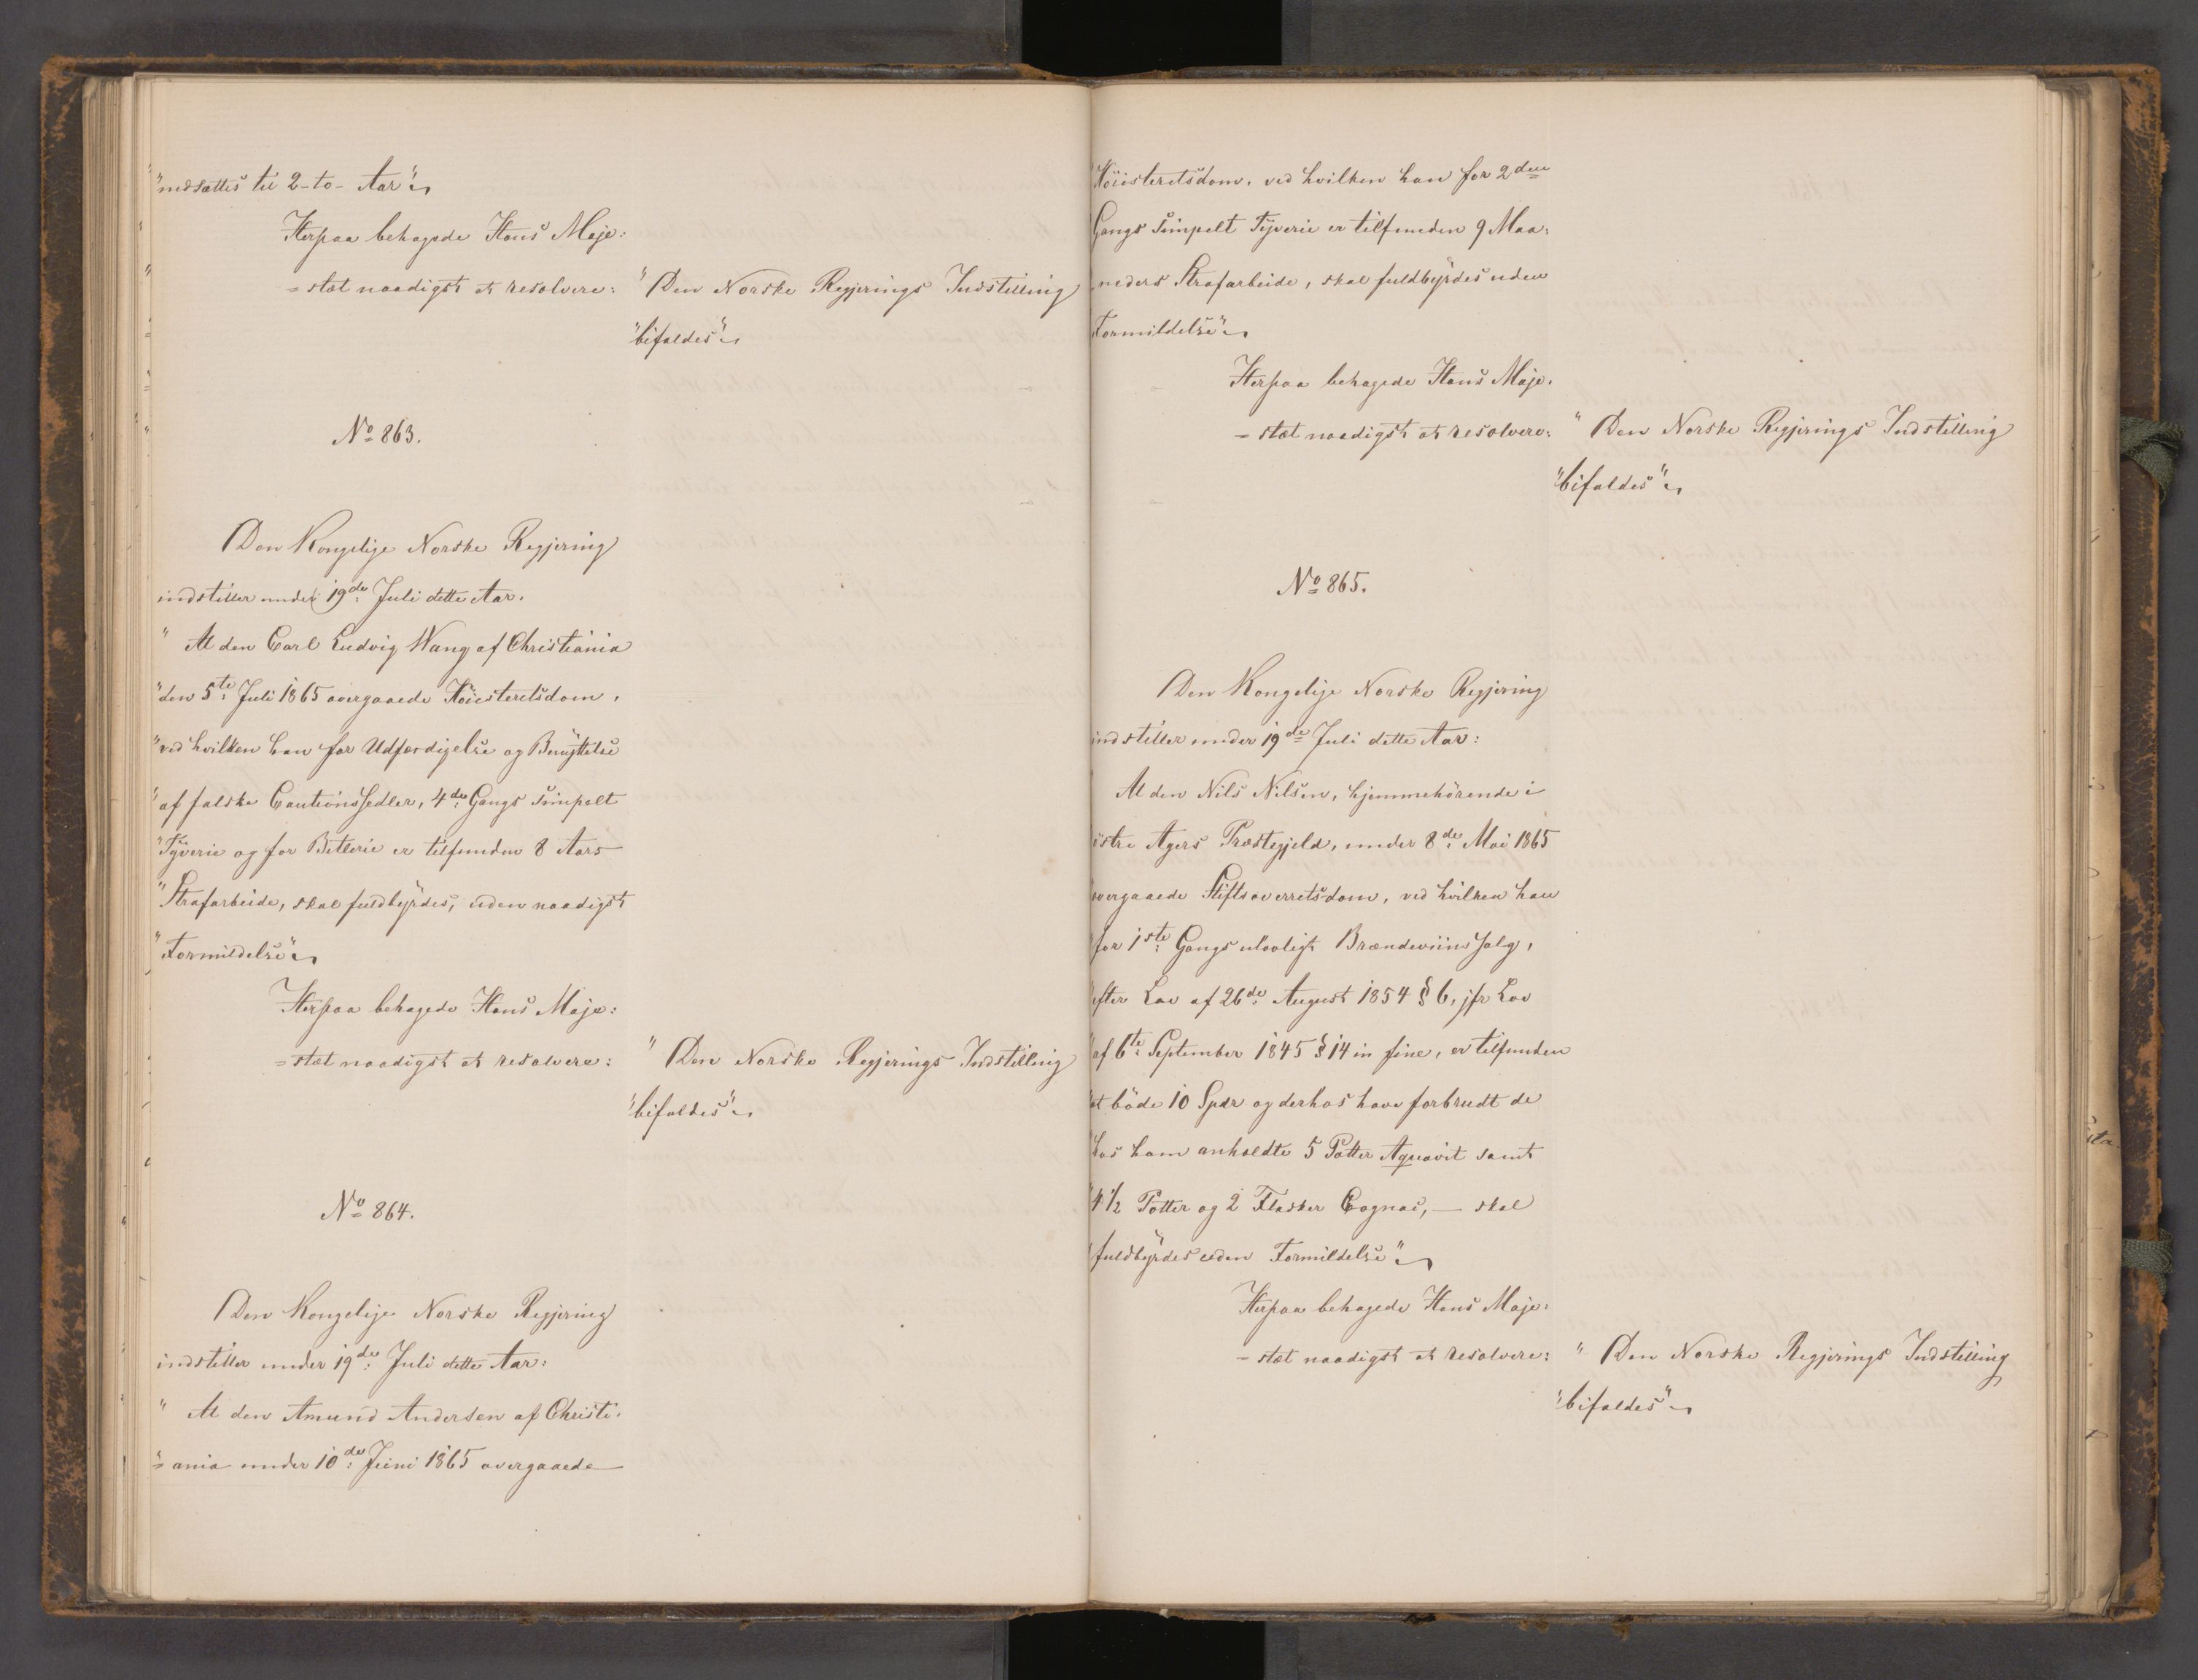 "nedsættes til 2-to-Aar".
Herpaa behagede Hans Maje:
=stæt naadigst at resolvere:
"Den Norske Regjerings Indstilling
"bifaldes".
No 863.
Den Kongelige Norske Regjering
indstiller under 19de Juli dette Aar.
" At den Carl Ludvig Wang af Christiania
"den 5te Juli 1865 overgaaede Höiesteretsdom,
"ved hvilken han for Udfærdigelse og Benyttelse
"af falske Cautionssedler, 4de Gangs simpelt
"Tyverie og for Betlerie er tilfunden 8 Aars
"Strafarbeide, skal fuldbyrdes, uden naadigst
"Formildelse".
Herpaa behagede Hans Maje:
=stæt naadigst at resolvere:
"Den Norske Regjerings Indstilling
"bifaldes".
No 864.
Den Kongelige Norske Regjering
indstiller under 19de Juli dette Aar:
" At den Amund Andersen af Christi:
"=ania under 10de Juni 1865 overgaaede
"Höiesteretsdom, ved hvilken han for 2den
Gangs simpelt Tyverie er tilfunden 9 Maa:
neders Strafarbeide, skal fuldbyrdes uden
Formildelse".
Herpaa behagede Hans Maje:
=stæt naadigst at resolvere:
"Den Norske Regjerings Indstilling
"bifaldes".
No 865.
Den Kongelige Norske Regjering
indstiller under 19de Juli dette Aar:
At den Nils Nilsen, hjemmehörende i
östre Agers Præstegjeld, under 8de Mai 1865
overgaaede Stiftsoverretsdom, ved hvilken han
"for 1ste Gangs ulovligt Brændeviinssalg,
"efter Lov af 26de August 1854 § 6, jfr Lov
"af 6te September 1845 § 14 in fine, er tilfunden
"at böde 10 Spdr og derhos have forbrudt de
"hos ham anholdte 5 Potter Aquavit samt
"4 1/2 Potter og 2 Flasker Cognac, — skal
"fuldbyrdes uden Formildelse".
Herpaa behagede Hans Maje:
=stæt naadigst at resolvere:
"Den Norske Regjerings Indstilling
"bifaldes".